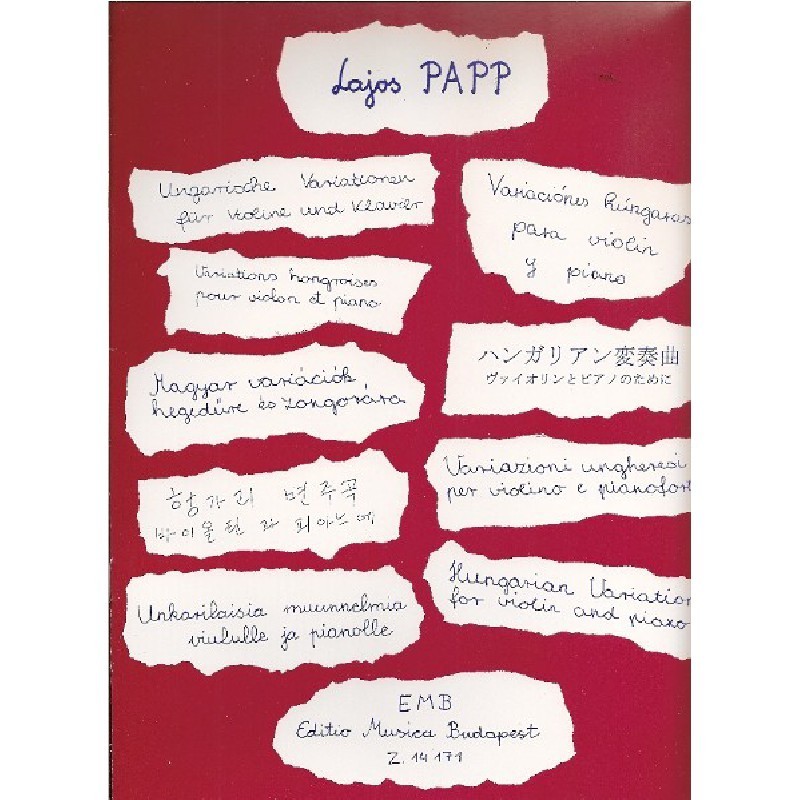 Lajos PAPP
Ungarische Variationen
für Violine und Klavier
Variations hongroises
pour violon et piano
Magyar variációk
hegedűre és zongorára
헝가리 변주곡
바이올린과 피아노에
Unkarilaisia muunnelmia
viululle ja pianolle
Variaciónes húngaras
para violin
y piano
ハンガリアン変奏曲
ヴァイオリンとピアノのために
Variazioni ungheresi
per violino e pianofor
Hungarian Variation
for violin and piano
EMB
Editio Musica Budapest
Z. 14 171